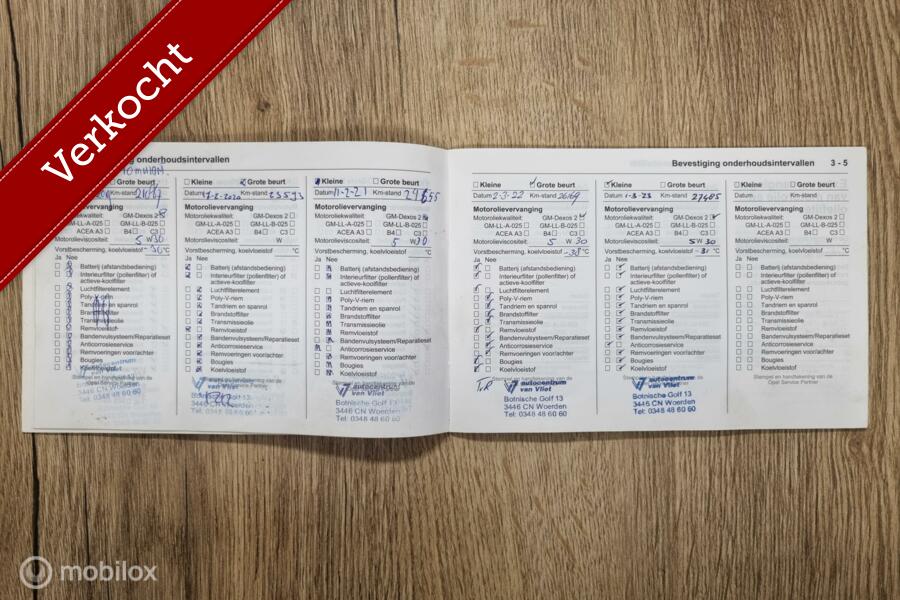 Verkocht
onderhoudsintervallen
Grote beurt
Km-stand
Motorolievervanging
Motoroliekwaliteit: GM-Dexos 2
GM-LL-A-025 GM-LL-B-025
ACEA A3 B4 C3
Motorolieviscositeit: 5 W30
Vorstbescherming, koelvloeistof °C
Ja Nee
Batterij (afstandsbediening)
Interieurfilter (pollenfilter) of
actieve-koolfilter
Luchtfilterelement
Poly-V-riem
Tandriem en spanrol
Brandstoffilter
Transmissieolie
Remvloeistof
Bandenvulsysteem/Reparatieset
Anticorrosieservice
Remvoeringen voor/achter
Bougies
Koelvloeistof
Stempel en handtekening van de
Opel Service Partner
Kleine Grote beurt
Datum Km-stand
Motorolievervanging
Motoroliekwaliteit: GM-Dexos 2
GM-LL-A-025 GM-LL-B-025
ACEA A3 B4 C3
Motorolieviscositeit: W
Vorstbescherming, koelvloeistof °C
Ja Nee
Batterij (afstandsbediening)
Interieurfilter (pollenfilter) of
actieve-koolfilter
Luchtfilterelement
Poly-V-riem
Tandriem en spanrol
Brandstoffilter
Transmissieolie
Remvloeistof
Bandenvulsysteem/Reparatieset
Anticorrosieservice
Remvoeringen voor/achter
Bougies
Koelvloeistof
autocentrum
van Vliet
Botnische Golf 13
3446 CN Woerden
Tel: 0348 48 60 60
Kleine Grote beurt
Datum 11-2-21 Km-stand
Motorolievervanging
Motoroliekwaliteit: GM-Dexos 2
GM-LL-A-025 GM-LL-B-025
ACEA A3 B4 C3
Motorolieviscositeit: 5 W30
Vorstbescherming, koelvloeistof °C
Ja Nee
Batterij (afstandsbediening)
Interieurfilter (pollenfilter) of
actieve-koolfilter
Luchtfilterelement
Poly-V-riem
Tandriem en spanrol
Brandstoffilter
Transmissieolie
Remvloeistof
Bandenvulsysteem/Reparatieset
Anticorrosieservice
Remvoeringen voor/achter
Bougies
Koelvloeistof
autocentrum
van Vliet
Botnische Golf 13
3446 CN Woerden
Tel: 0348 48 60 60
Bevestiging onderhoudsintervallen 3 - 5
Kleine Grote beurt
Datum 2-3-22 Km-stand
Motorolievervanging
Motoroliekwaliteit: GM-Dexos 2
GM-LL-A-025 GM-LL-B-025
ACEA A3 B4 C3
Motorolieviscositeit: 5 W 30
Vorstbescherming, koelvloeistof °C
Ja Nee
Batterij (afstandsbediening)
Interieurfilter (pollenfilter) of
actieve-koolfilter
Luchtfilterelement
Poly-V-riem
Tandriem en spanrol
Brandstoffilter
Transmissieolie
Remvloeistof
Bandenvulsysteem/Reparatieset
Anticorrosieservice
Remvoeringen voor/achter
Bougies
Koelvloeistof
autocentrum
van Vliet
Botnische Golf 13
3446 CN Woerden
Tel: 0348 48 60 60
Kleine Grote beurt
Datum 1-3-23 Km-stand 27485
Motorolievervanging
Motoroliekwaliteit: GM-Dexos 2
GM-LL-A-025 GM-LL-B-025
ACEA A3 B4 C3
Motorolieviscositeit: 5W 30
Vorstbescherming, koelvloeistof -31 °C
Ja Nee
Batterij (afstandsbediening)
Interieurfilter (pollenfilter) of
actieve-koolfilter
Luchtfilterelement
Poly-V-riem
Tandriem en spanrol
Brandstoffilter
Transmissieolie
Remvloeistof
Bandenvulsysteem/Reparatieset
Anticorrosieservice
Remvoeringen voor/achter
Bougies
Koelvloeistof
autocentrum
van Vliet
Botnische Golf 13
3446 CN Woerden
Tel: 0348 48 60 60
Kleine Grote beurt
Datum Km-stand
Motorolievervanging
Motoroliekwaliteit: GM-Dexos 2
GM-LL-A-025 GM-LL-B-025
ACEA A3 B4 C3
Motorolieviscositeit: W
Vorstbescherming, koelvloeistof °C
Ja Nee
Batterij (afstandsbediening)
Interieurfilter (pollenfilter) of
actieve-koolfilter
Luchtfilterelement
Poly-V-riem
Tandriem en spanrol
Brandstoffilter
Transmissieolie
Remvloeistof
Bandenvulsysteem/Reparatieset
Anticorrosieservice
Remvoeringen voor/achter
Bougies
Koelvloeistof
Stempel en handtekening van de
Opel Service Partner
mobilox